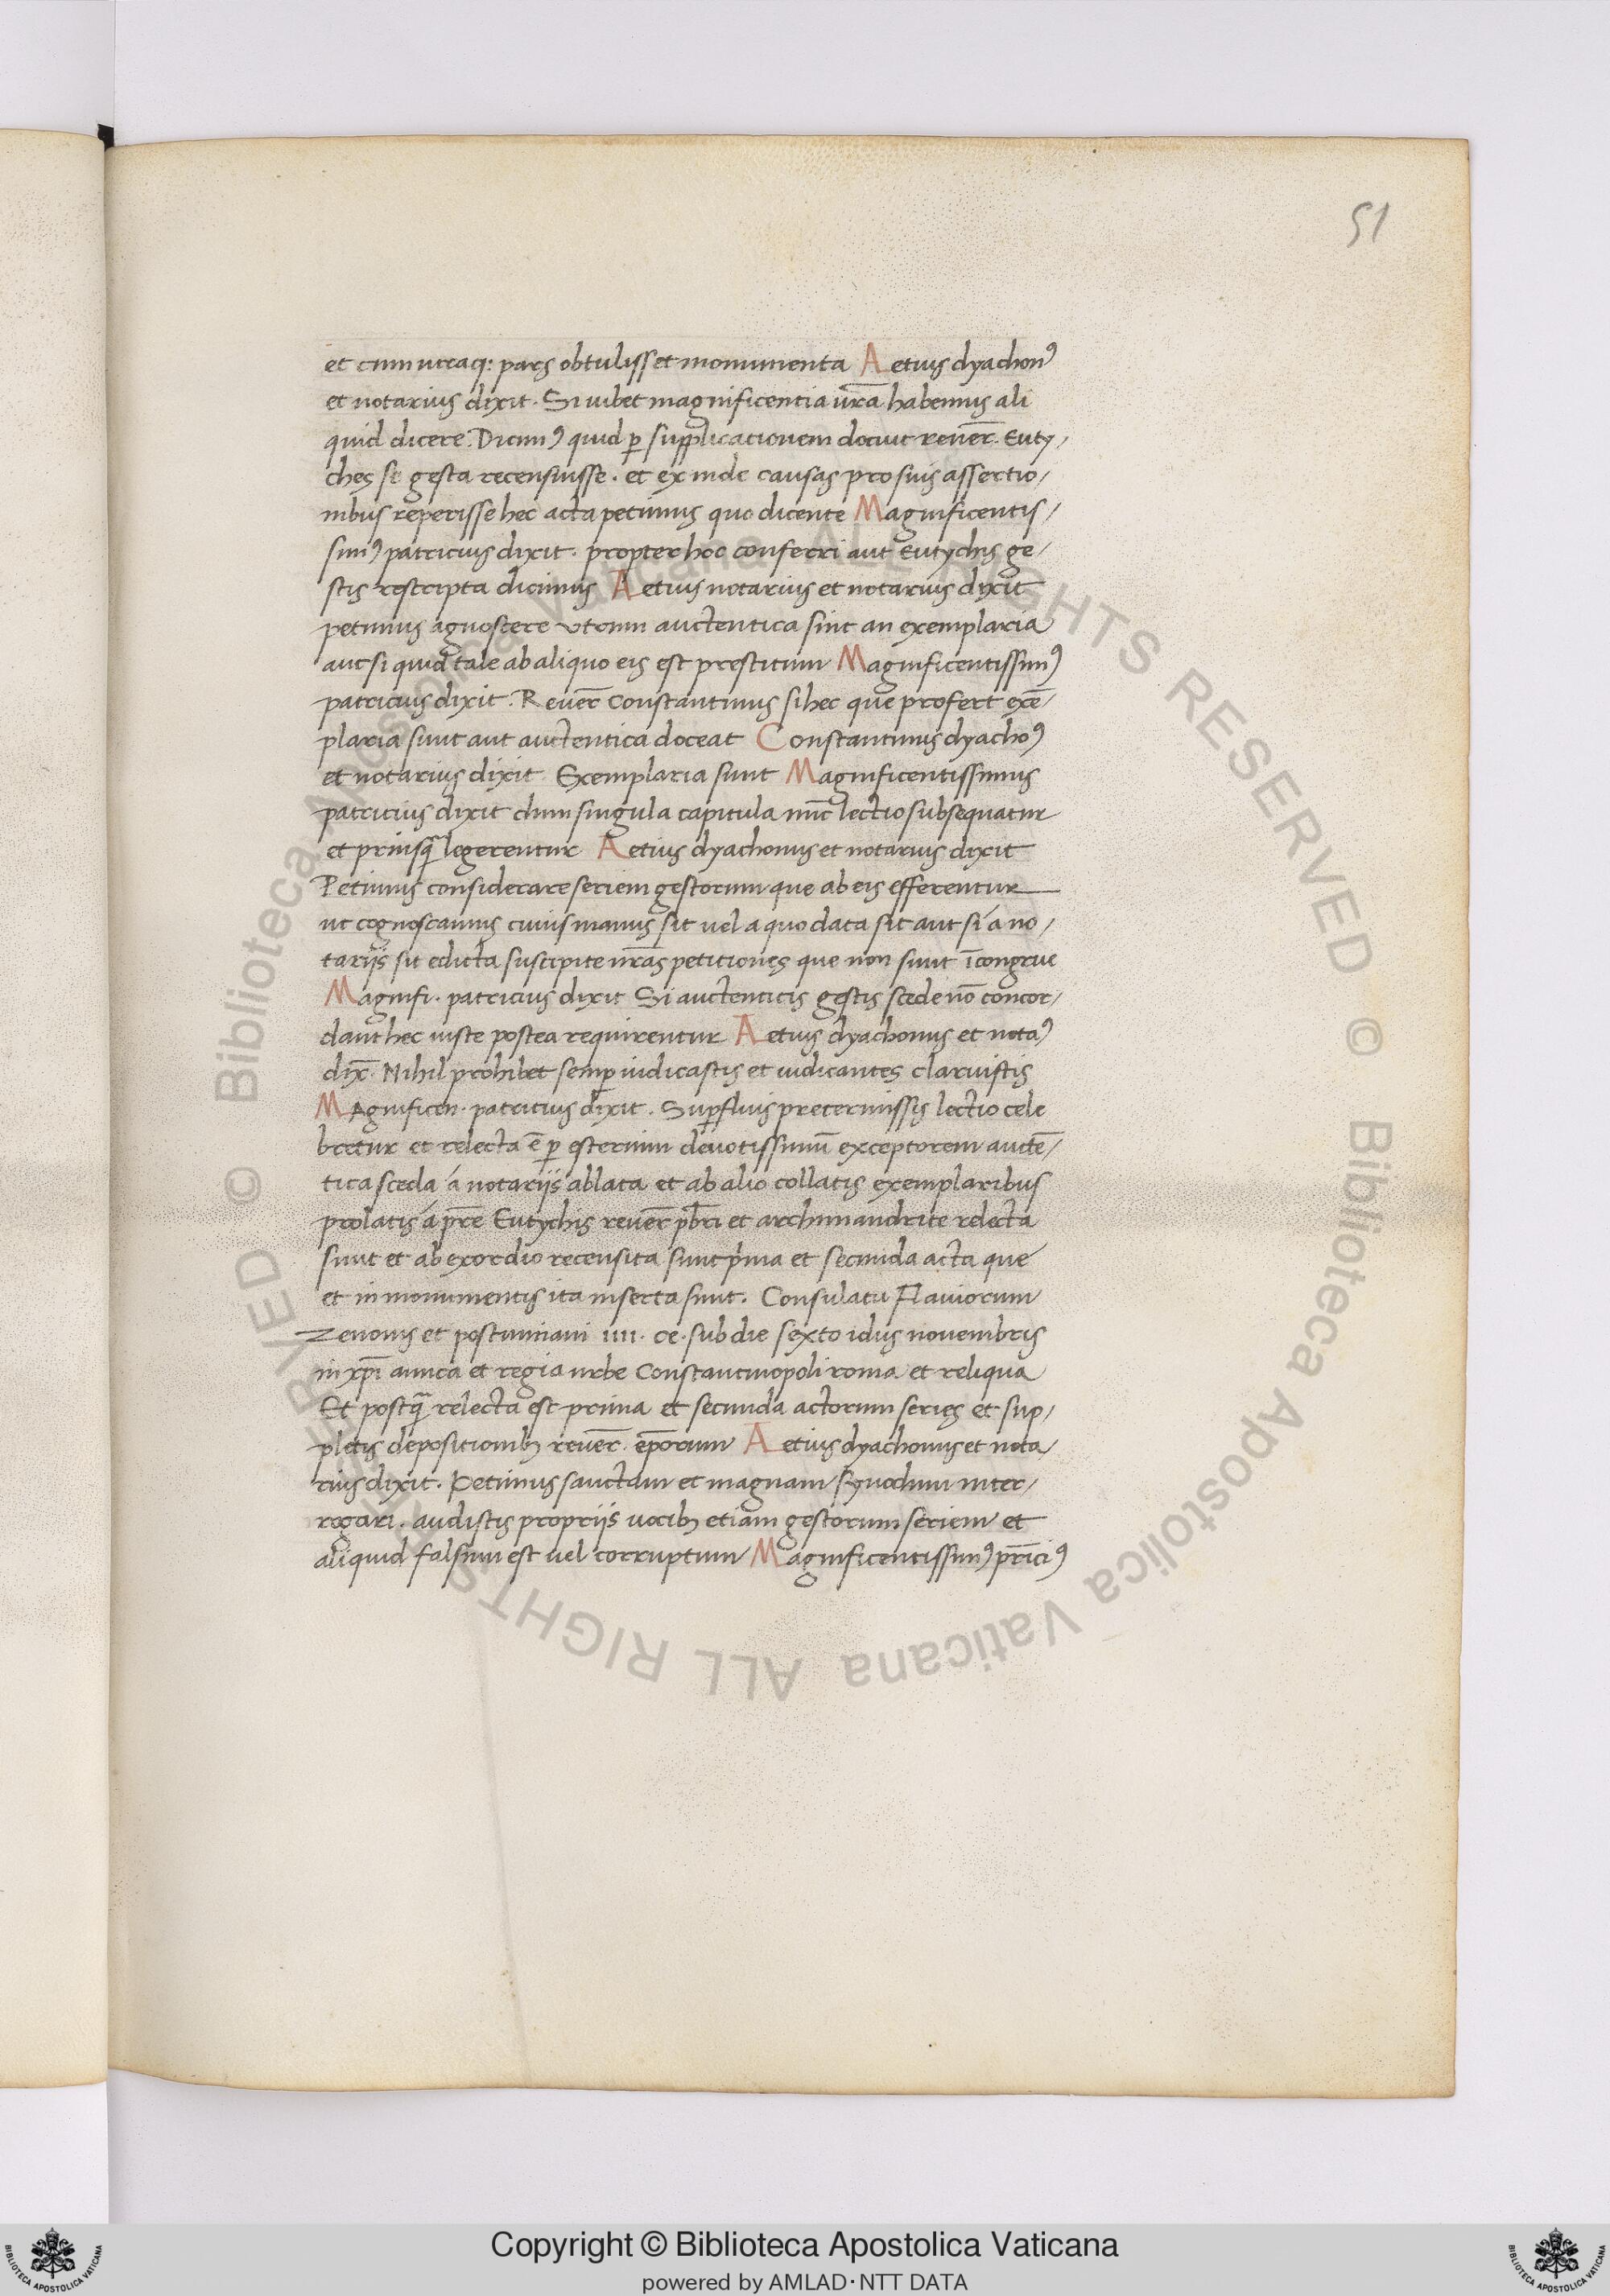 51
et cum utraq: pars obtulisset monumenta Aetius dyachonꝰ
et notarius dixit. Si iubet magnificentia ur̄a habemus ali
quid dicere. Dicimꝰ quid ꝑ supplicationem docuit reuer̄. Euty/
ches se gesta recensuisse. et ex inde causas pro suis assertio/
nibus reperisse hec acta petimus quo dicente Magnificentis/
simꝰ patricius dixit. propter hoc conferri aut Eutychis ge/
stis rescripta dicimus Aetius notarius et notarius dixit
petimus agnoscere utrum auctentica sint an exemplaria
aut si quid tale ab aliquo eis est prestitum Magnificentissimꝰ
patricius dixit. Reuer̄ Constantinus si hec que profert exē/
plaria sunt aut auctentica doceat Constantinus dyachoꝰ
et notarius dixit Exemplaria sunt Magnificentissimus
patricius dixit chum singula capitula nūc lectio subsequatur
et priusq̄ legerentur Aetius dyachonus et notarius dixit
Petimus considerare seriem gestorum que ab eis efferentur
ut cognoscamus cuius manus sit uel a quo data sit aut si á no/
tariis sit edicta suscipite nr̄as petitiones que non sunt īcongrue
Magnifi. patricius dixit Si auctenticis gestis scede nō concor/
dant hec iuste postea requirentur Aetius dyachonus et notaꝰ
dix̄. Nihil prohibet semꝑ iudicastis et iudicantes claruistis
MAgnificen. patritius dixit. Suꝑfluis pretermissis lectio cele
bretur et relecta ē ꝑ esterium deuotissimū exceptorem auctē/
tica sceda á notariis ablata et ab alio collatis exemplaribus
prolatis á pr̄e Eutychis reuer̄ pbr̄i et archimandrite relecta
sunt et ab exordio recensita sunt pͥma et secunda acta que
et in monumentis ita inserta sunt. Consulatu Flauiorum
Zenonis et postumiani IIII. ce. sub die sexto idus nouembris
in xp̄i amica et regia urbe Constantinopoli roma et reliqua
Et postq̄ relecta est prima et secunda actorum series et sup/
pletis depositionibꝫ reuer̄. ep̄orum Aetius dyachonus et nota/
rius dixit. Petimus sanctam et magnam synodum inter/
rogari. audistis propriis uocibꝫ etiam gestorum seriem et
aliquid falsum est uel corruptum Magnificentissimꝰ pr̄iciꝰ
Copyright © Biblioteca Apostolica Vaticana
powered by AMLAD·NTT DATA